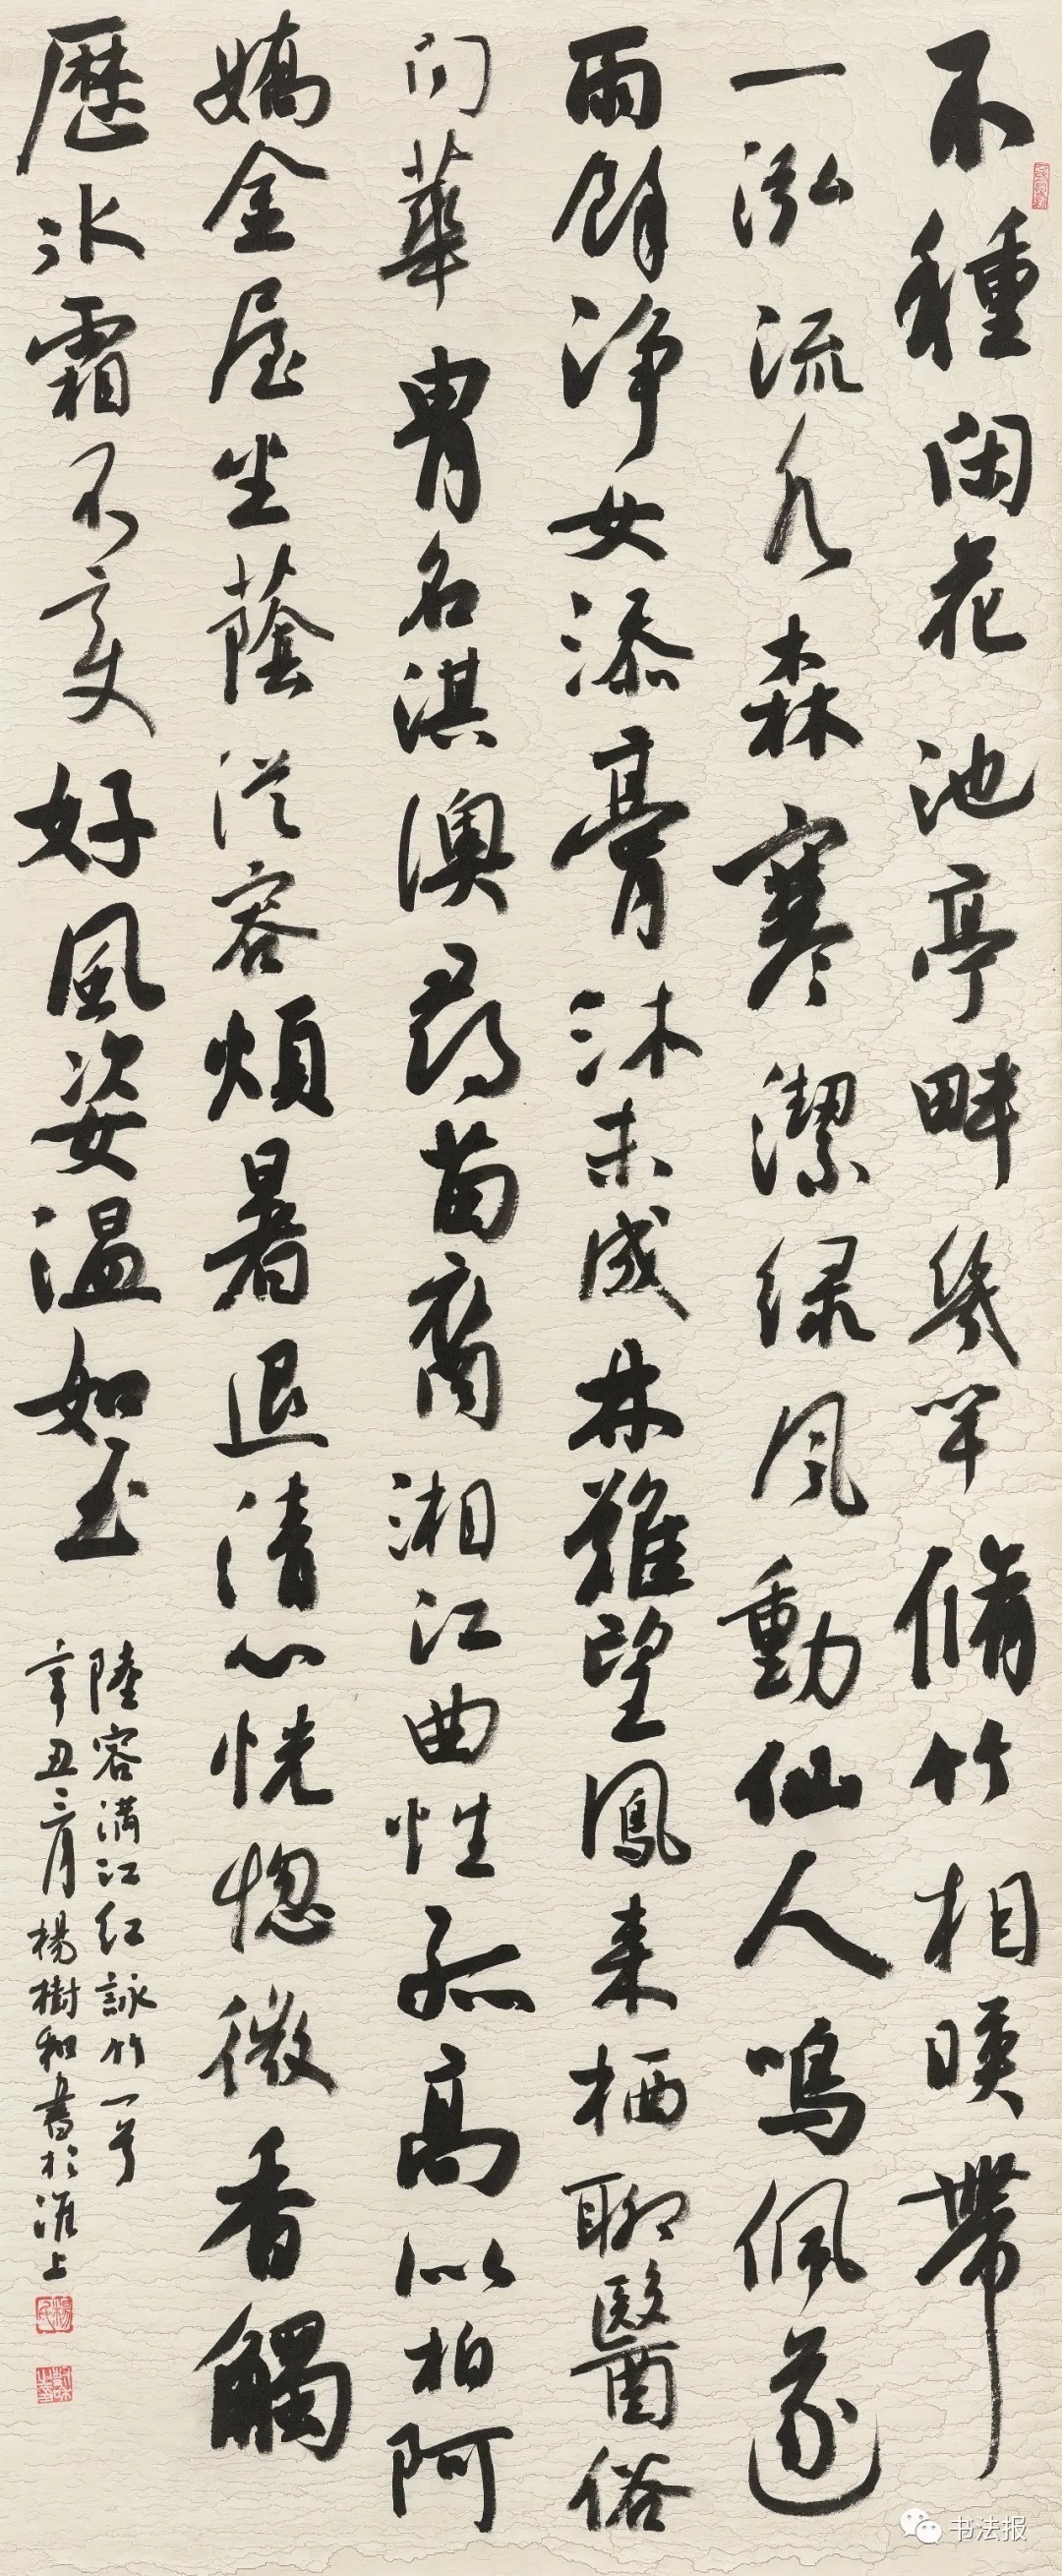 不種閑花池亭畔幾竿脩竹相暎帶
一泓流水森寒潔绿風動仙人鳴佩遂
雨餘净女添膏沐未成林難望鳳来栖聊醫俗
问華胄名淇澳尋苗裔湘江曲性孤高似柏阿
嬌金屋坐蔭從容煩暑退清心恍惚微香觸
歷冰霜不变好風姿温如玉
陸容满江红詠竹一首
辛丑三月楊樹和書於淮上
书法报